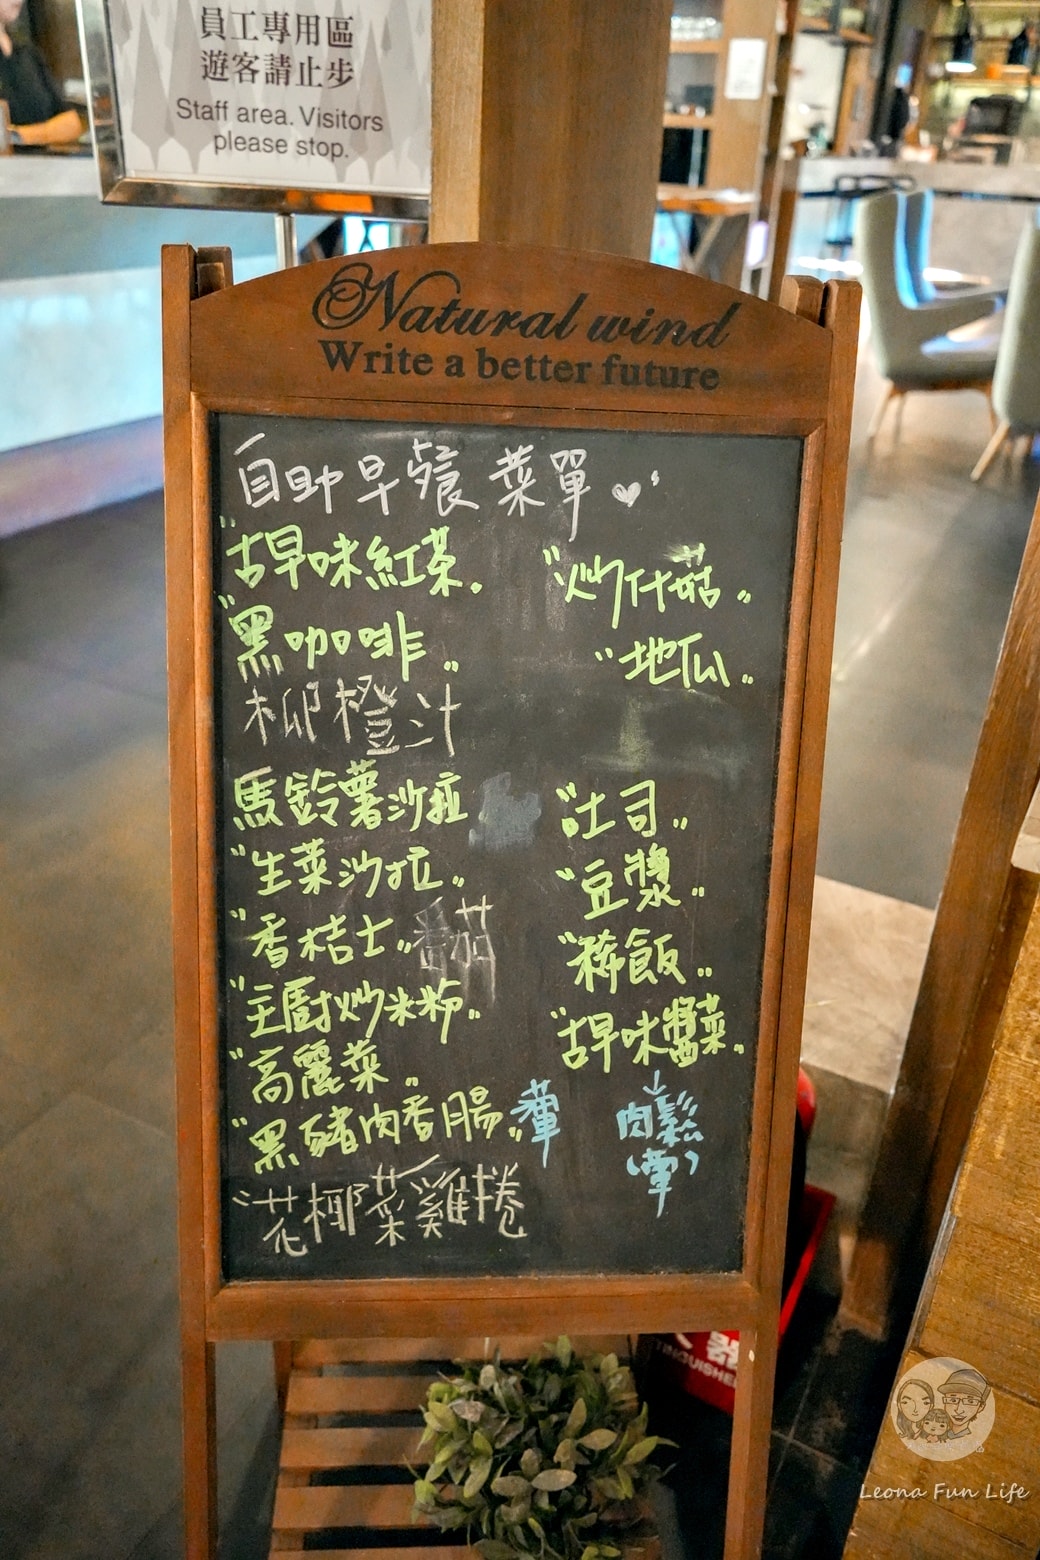 員工專用區
遊客請止步
Staff area. Visitors
please stop.
Natural wind
Write a better future
自助早餐菜單
"古早味紅茶"
"黑咖啡"
柳橙汁
馬鈴薯沙拉
"生菜沙拉"
"香桔士"番茄
"主廚炒米粉"
"高麗菜"
"黑豬肉香腸"葷
"花椰菜雞捲
"炒什菇"
"地瓜"
"吐司"
"豆漿"
"稀飯"
"古早味醬菜"
↓
肉鬆
(葷)
TINGUISHE
Leona Fun Life